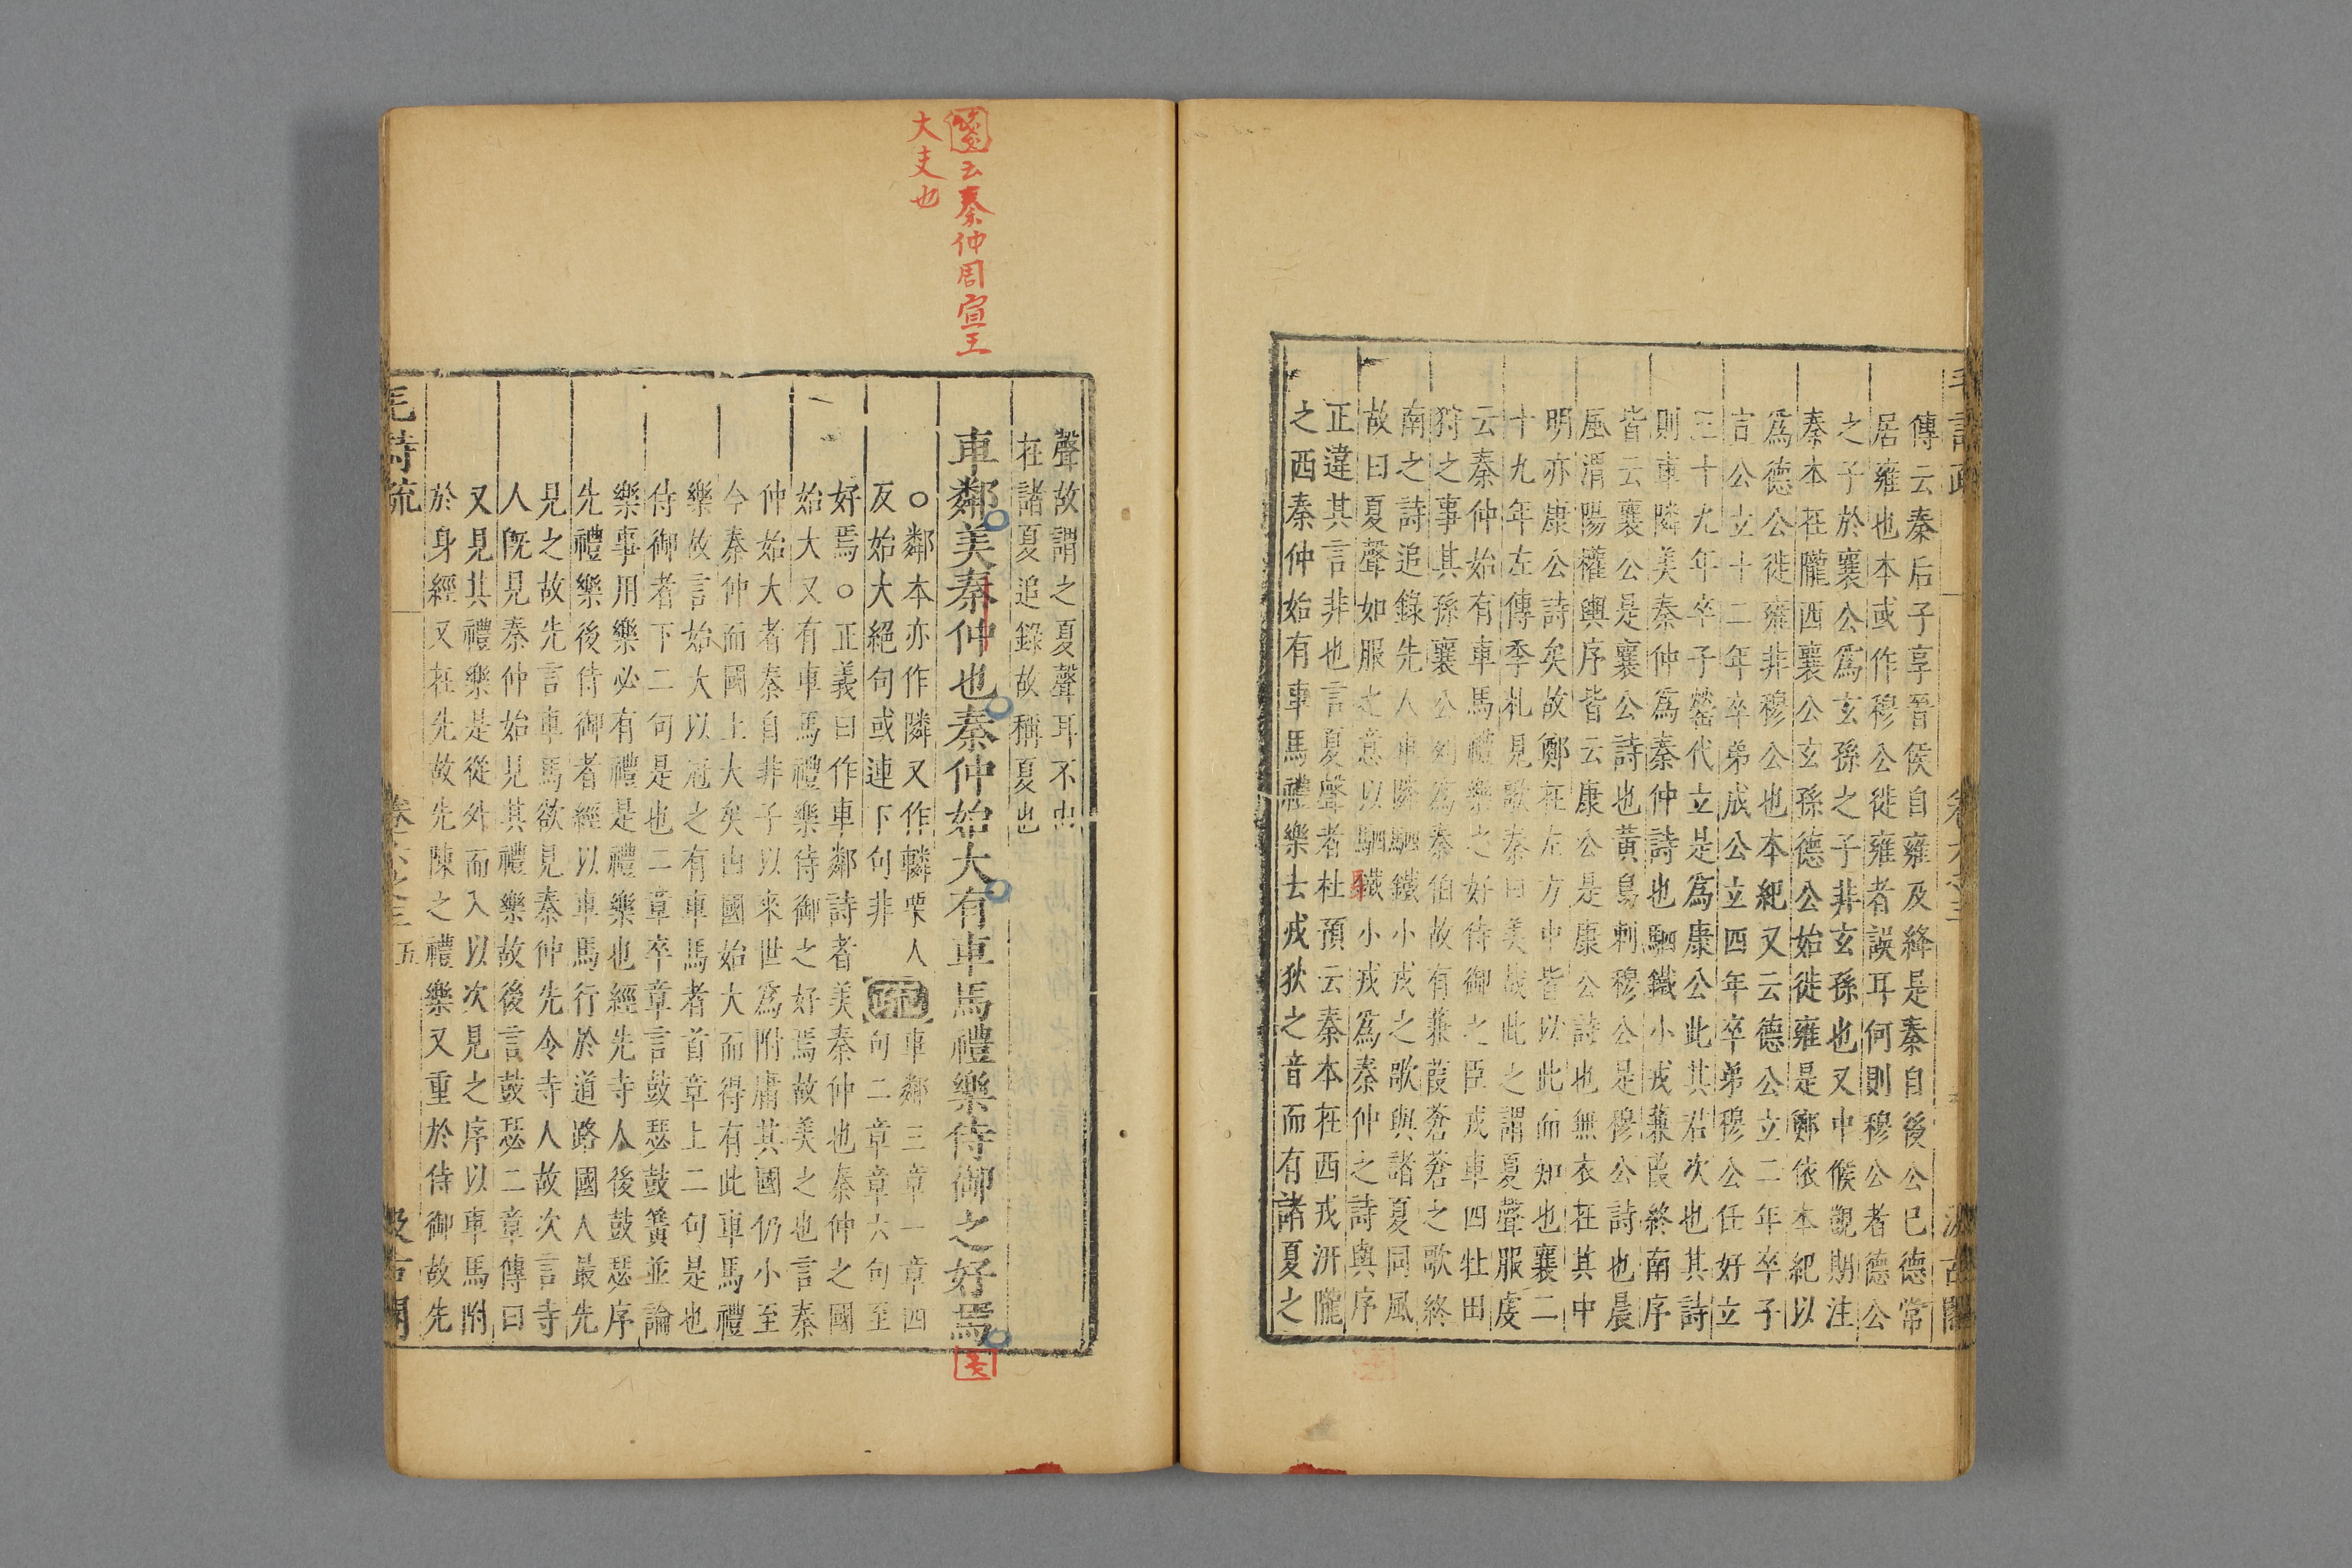 傳云秦后子享晉侯自雍及絳是秦自後公已德常
居雍也本或作穆公徙雍者誤耳何則穆公者德公
之子於襄公爲玄孫之子非玄孫也又中候覬期注
秦本在隴西襄公玄孫德公始徙雍是鄭依本紀以
爲德公徙雍非穆公也本紀又云德公立二年卒子
言公立十二年卒弟成公立四年卒弟穆公任好立
三十九年卒子罃代立是爲康公此其君次也其詩
則車隣美秦仲爲秦仲詩也駟鐵小戎蒹葭終南序
皆云襄公是襄公詩也黃鳥刺穆公是穆公詩也晨
風渭陽權輿序皆云康公是康公詩也無衣在其中
明亦康公詩矣故鄭在左方中皆以此而知也襄二
十九年左傳季札見歌秦曰美哉此之謂夏聲服虔
云秦仲始有車馬禮樂之好侍御之臣戎車四牡田
狩之事其孫襄公列爲秦伯故有蒹葭蒼蒼之歌終
南之詩追錄先人車隣駟鐵小戎之歌與諸夏同風
故曰夏聲如服之意以駟鐵小戎爲秦仲之詩與序
正違其言非也言夏聲者杜預云秦本在西戎汧隴
之西秦仲始有車馬禮樂去戎狄之音而有諸夏之
汲古閣
聲故謂之夏聲耳不由
在諸夏追錄故稱夏也
箋云秦仲周宣王
大夫也
車鄰美秦仲也秦仲始大有車馬禮樂侍御之好焉
○鄰本亦作隣又作轔栗人
反始大絕句或連下句非
疏
車鄰三章一章四
句二章章六句至
好焉○正義曰作車鄰詩者美秦仲也秦仲之國
始大又有車馬禮樂侍御之好焉故美之也言秦
仲始大者秦自非子以來世爲附庸其國仍小至
今秦仲而國土大矣由國始大而得有此車馬禮
樂故言始大以冠之有車馬者首章上二句是也
侍御者下二句是也二章卒章言鼓瑟鼓簧並論
樂事用樂必有禮是禮樂也經先寺人後鼓瑟序
先禮樂後侍御者經以車馬行於道路國人最先
見之故先言車馬欲見秦仲先令寺人故次言寺
人旣見秦仲始見其禮樂故後言鼓瑟二章傳曰
又見其禮樂是從外而入以次見之序以車馬附
於身經又在先故先陳之禮樂又重於侍御故先
毛詩疏
卷六之三
五